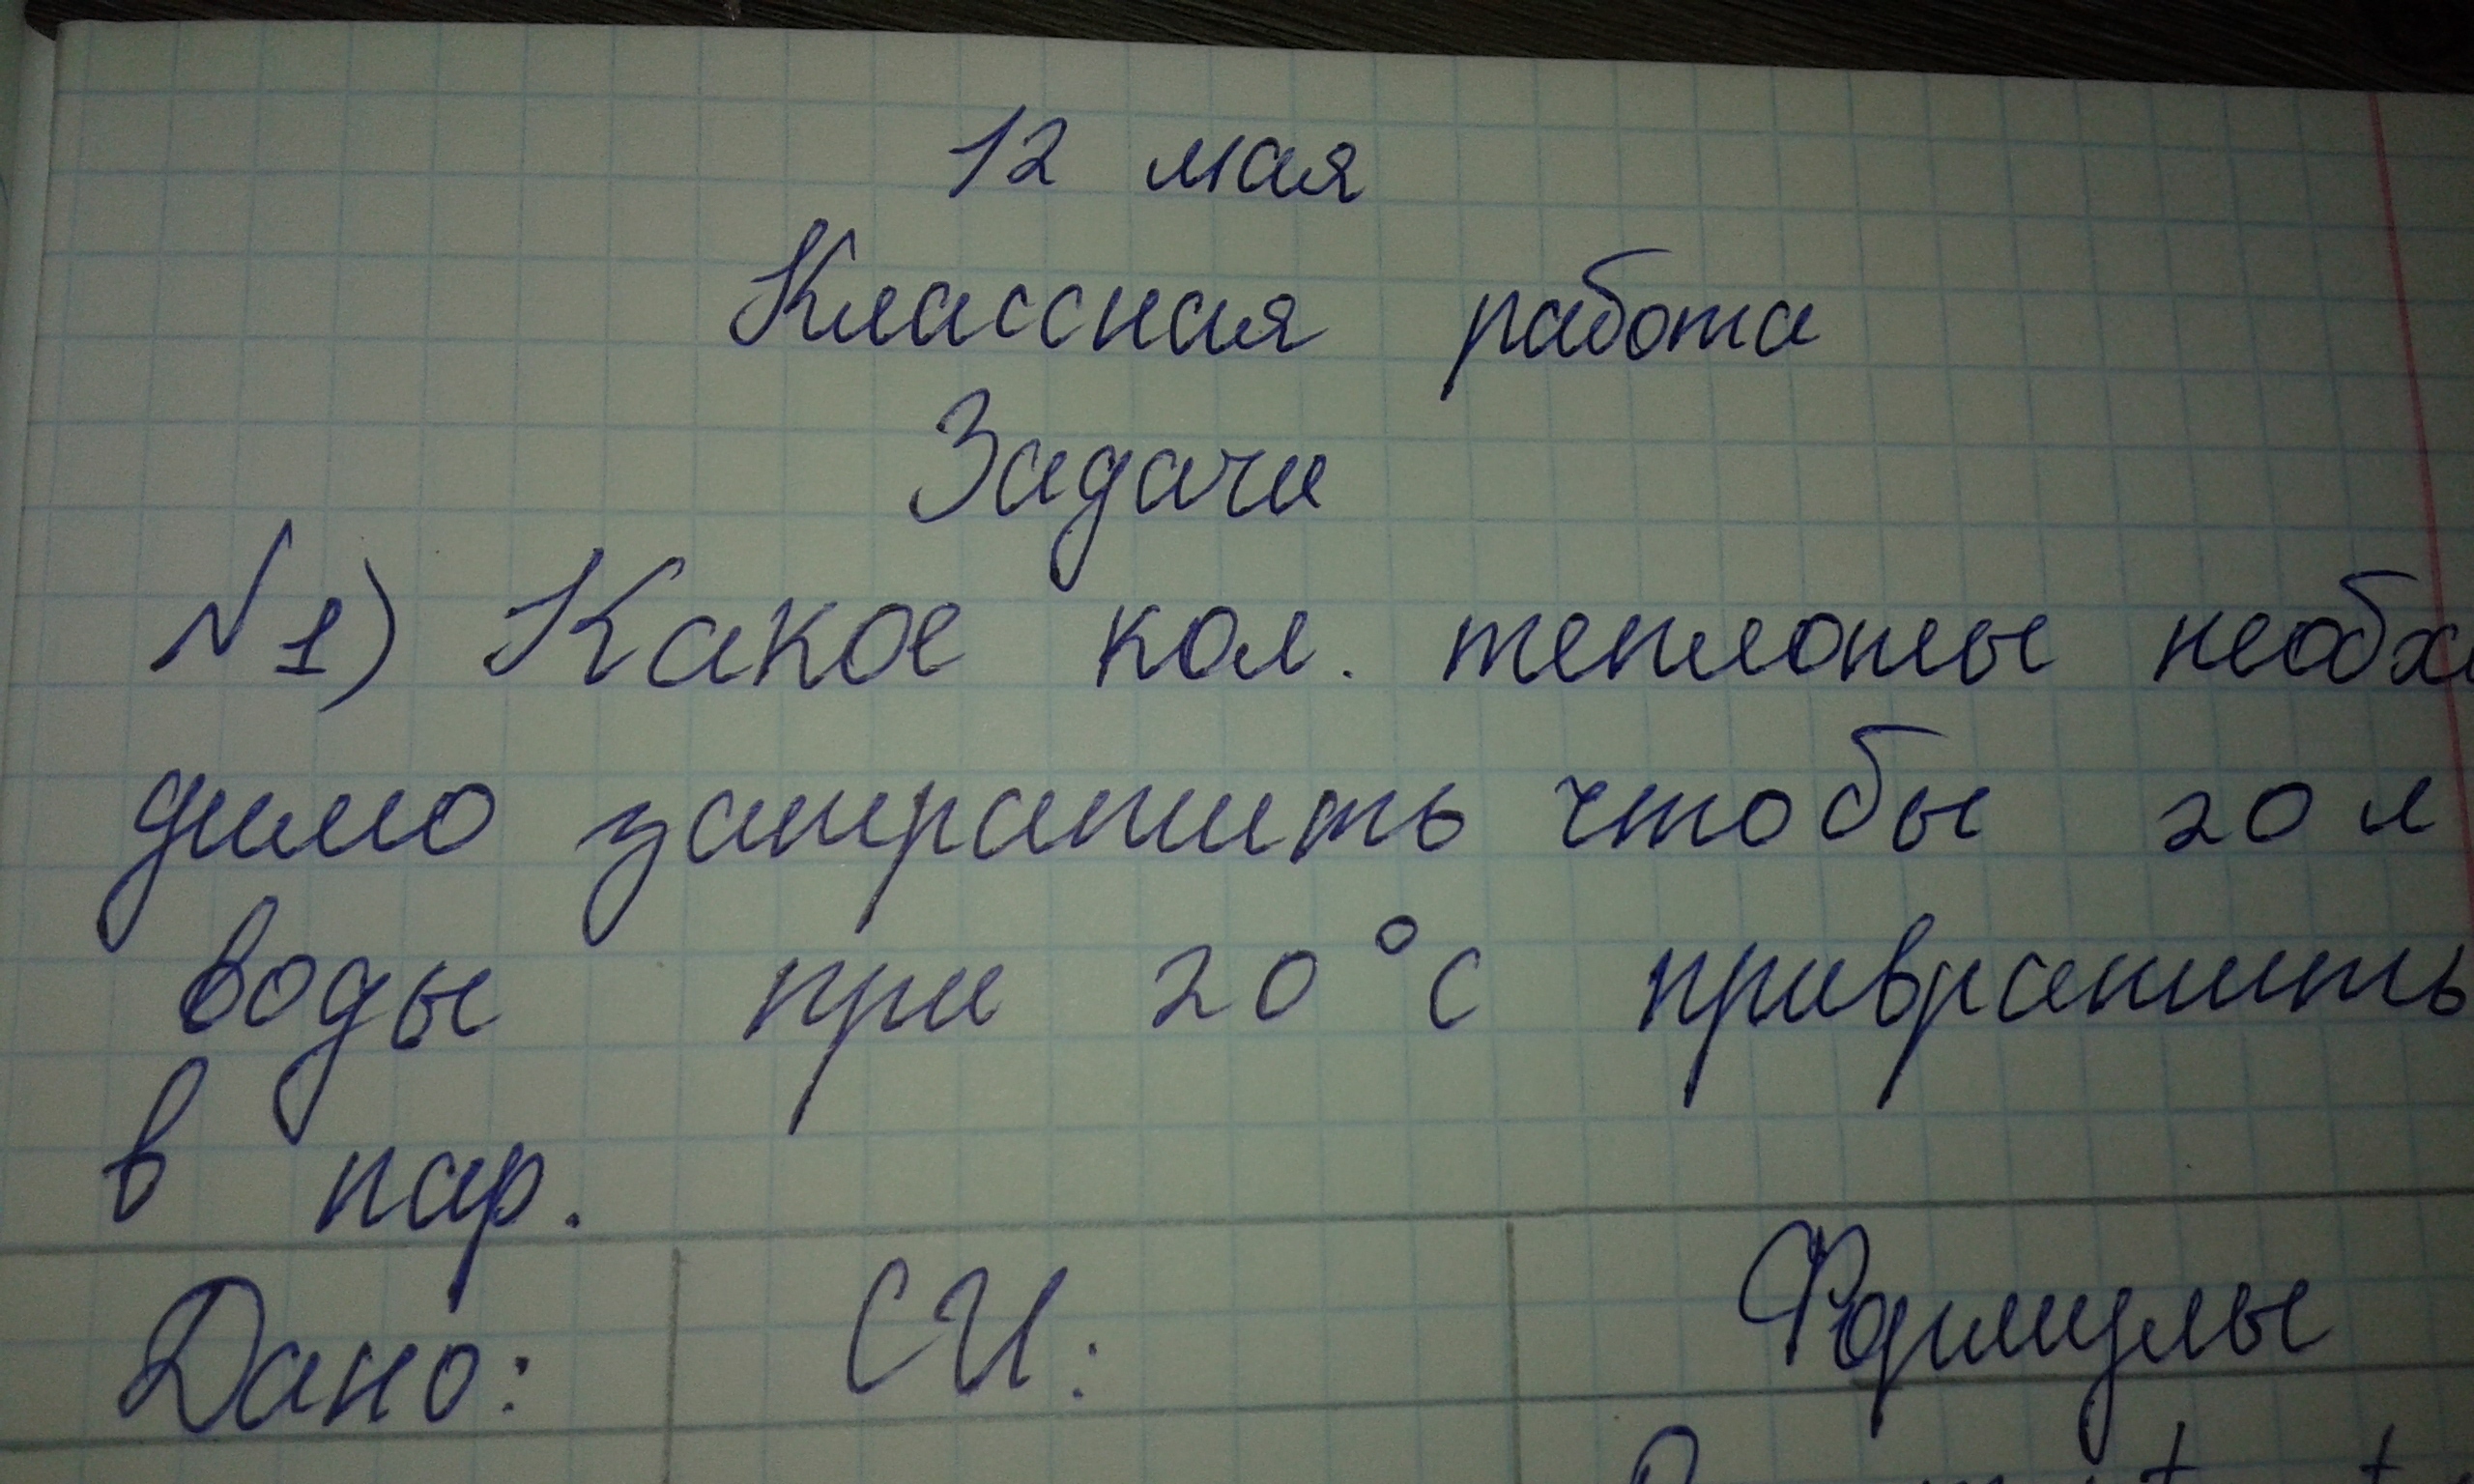 12 мая
Классная работа
Задачи
№1) Какое кол. теплоты необхо
димо затратить чтобы 20 л
воды при 20°С привратить
в пар.
Дано: СИ: Формулы